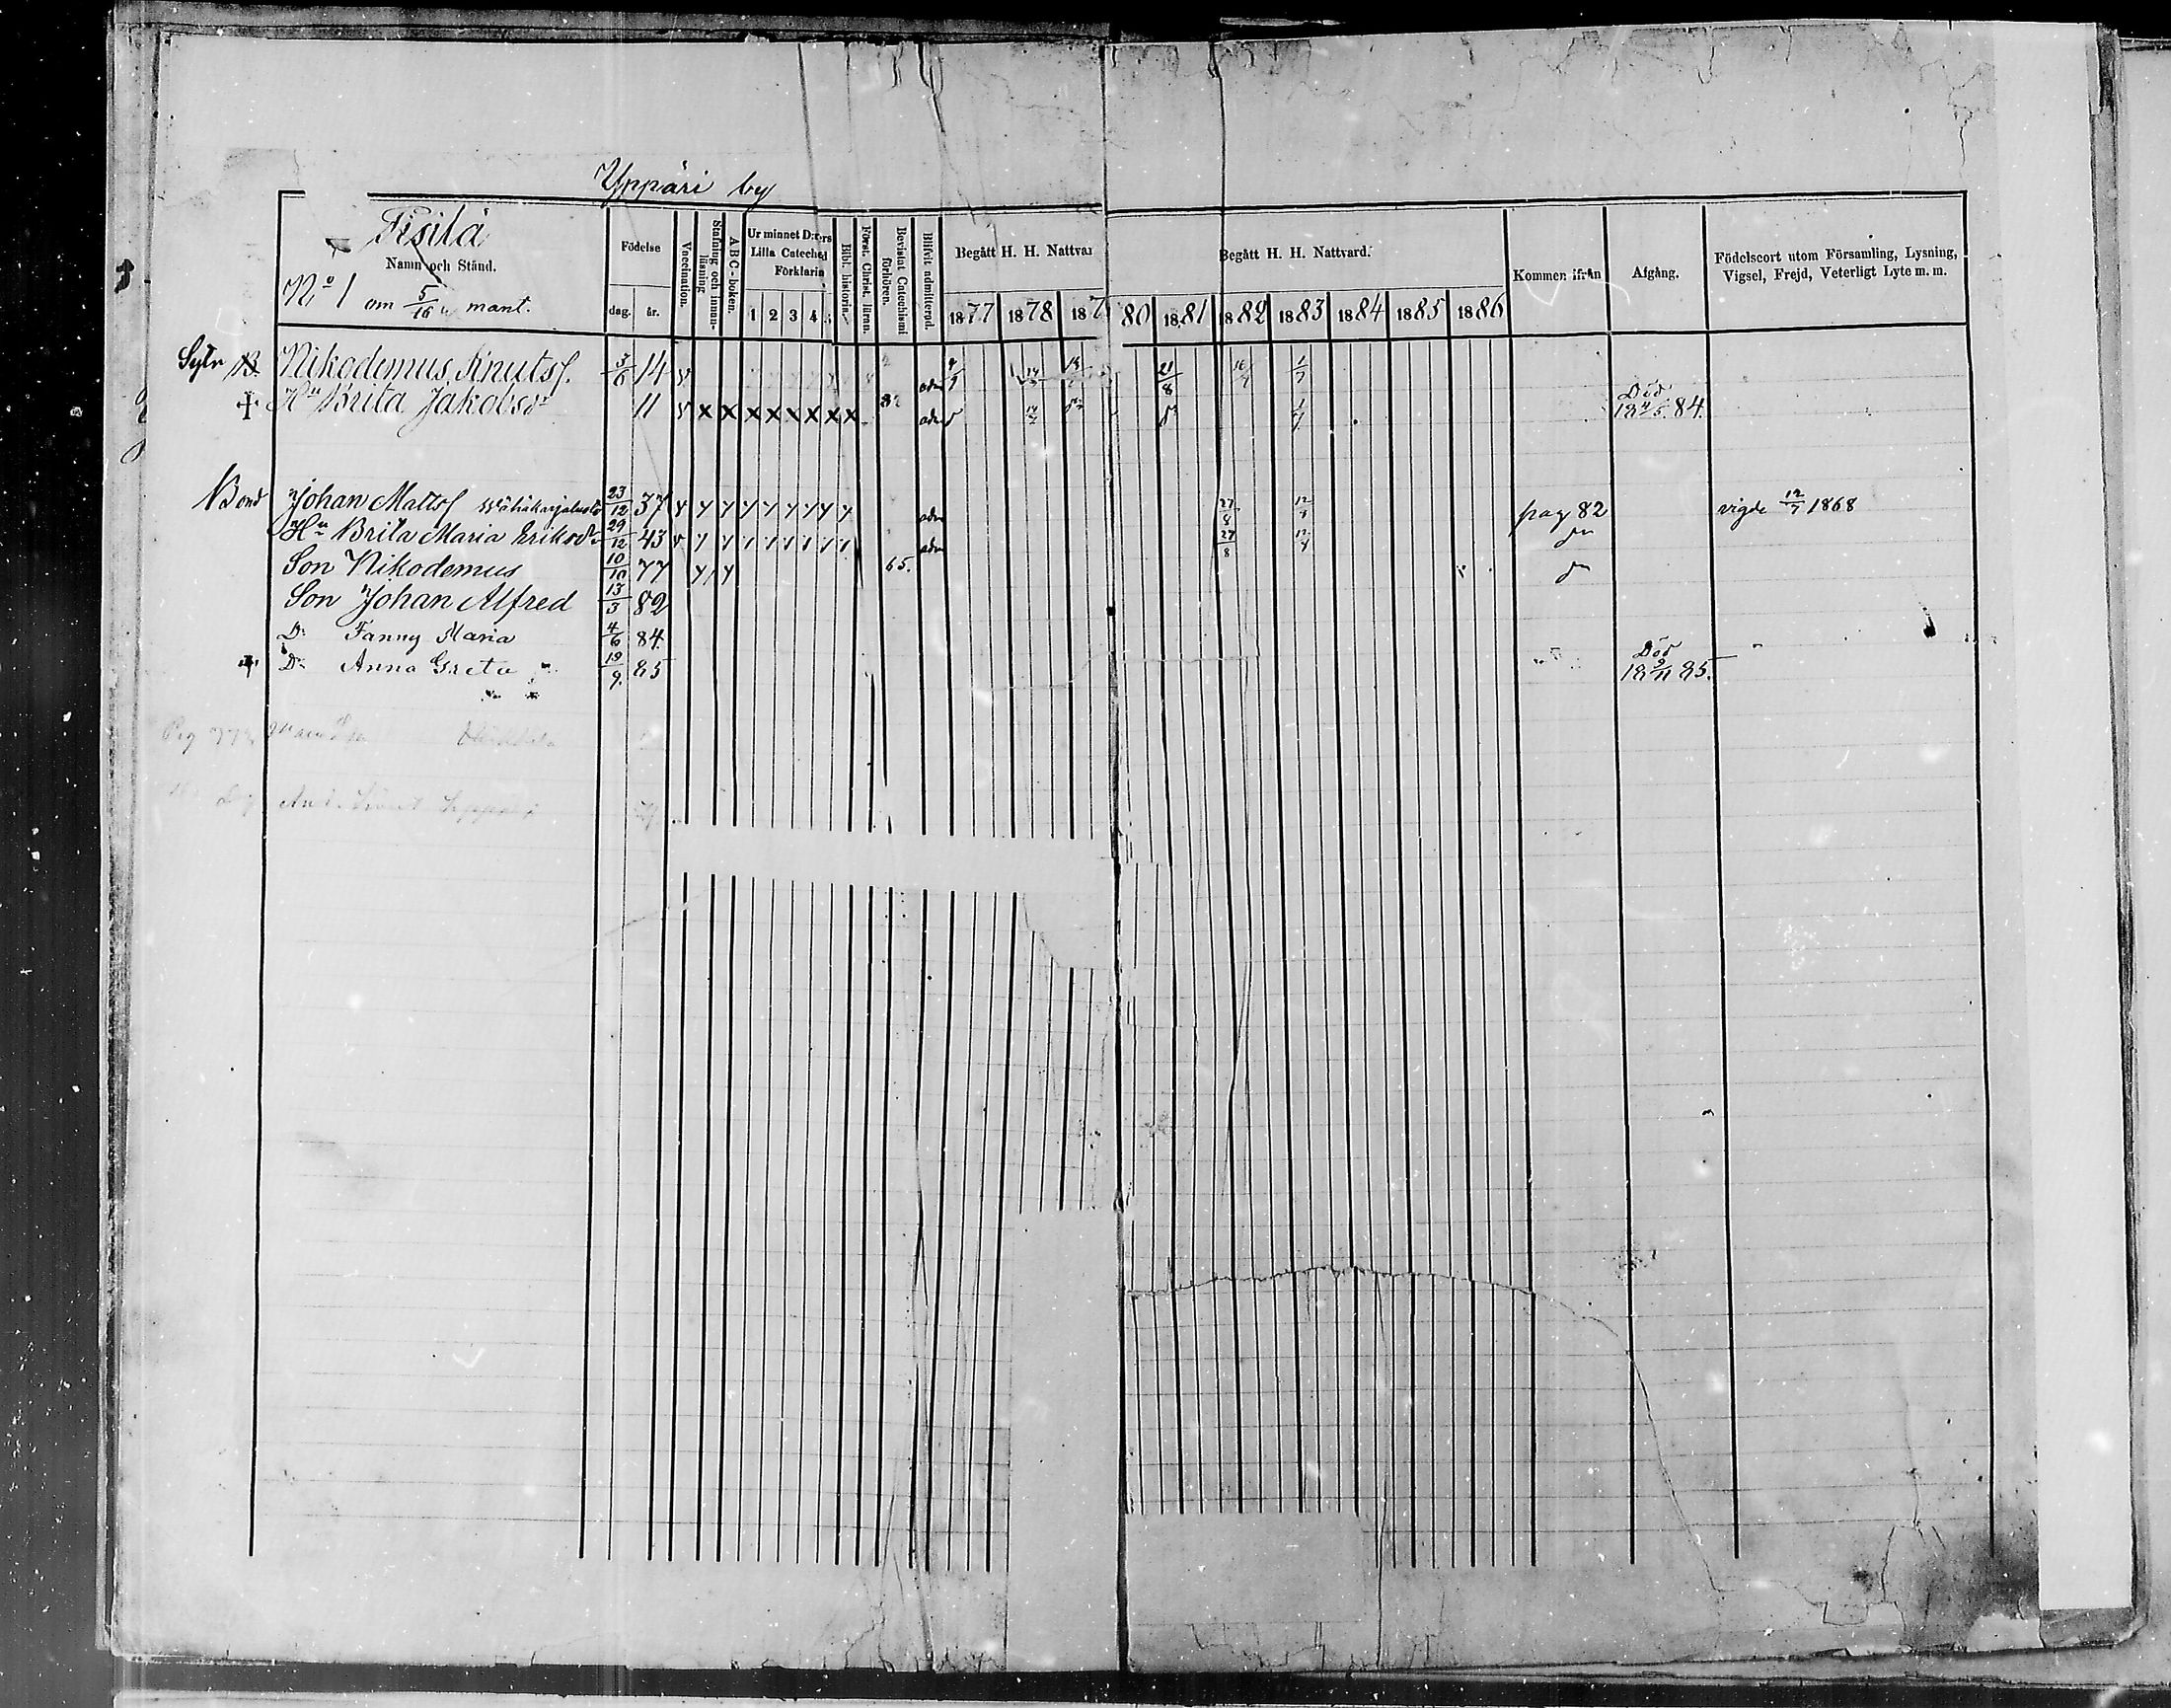 Yppäri by
Fisilä
Namn och Stånd.
No 1 om 5/16 mant.
Födelse
dag. år.
Vaccination.
Stafning och innanläsning
ABC-boken.
Ur minnet D:rers
Lilla Cateched
Förklarin
1 2 3 4 5
Bibl. historia.
Först. Christ. läran.
Bevistat Catechismi förhören.
Blifvit admitterad.
Begått H. H. Nattvar
1877 1878 187
Begått H. H. Nattvard.
80 1881 1882 1883 1884 1885 1886
Kommen ifrån
Afgång.
Födelseort utom Församling, Lysning,
Vigsel, Frejd, Veterligt Lyte m. m.
Sytn B. Nikodemus Knutsf. 3/6 14 v adm 21/8 1/7
Hu Brita Jakobsdr 11 v x x x x x x x x adm 1/7 Död 18 84.
Bond Johan Mattsf 23/12 37 adm 27/8 pag 82 vigde 12/7 1868
Hu Brita Maria Eriksdr 29/12 43 adm 27/8
Son Nikodemus 10/10 77 65.
Son Johan Alfred 13/3 82
Dr Fanny Maria 4/6 84.
Dr Anna Greta 19/9. 85 Död 18 9/11 85.